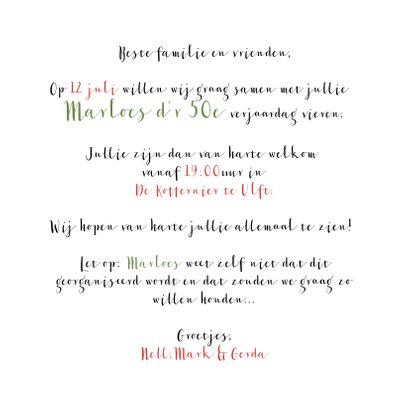 Beste familie en vrienden,
Op 12 juli willen wij graag samen met jullie
Marloes d'r 50e verjaardag vieren.
Jullie zijn dan van harte welkom
vanaf 19.00uur in
De Kotternier te Ulft.
Wij hopen van harte jullie allemaal te zien!
Let op: Marloes weet zelf niet dat dit
georganiseerd wordt en dat zouden we graag zo
willen houden...
Groetjes,
Nell, Mark & Gerda